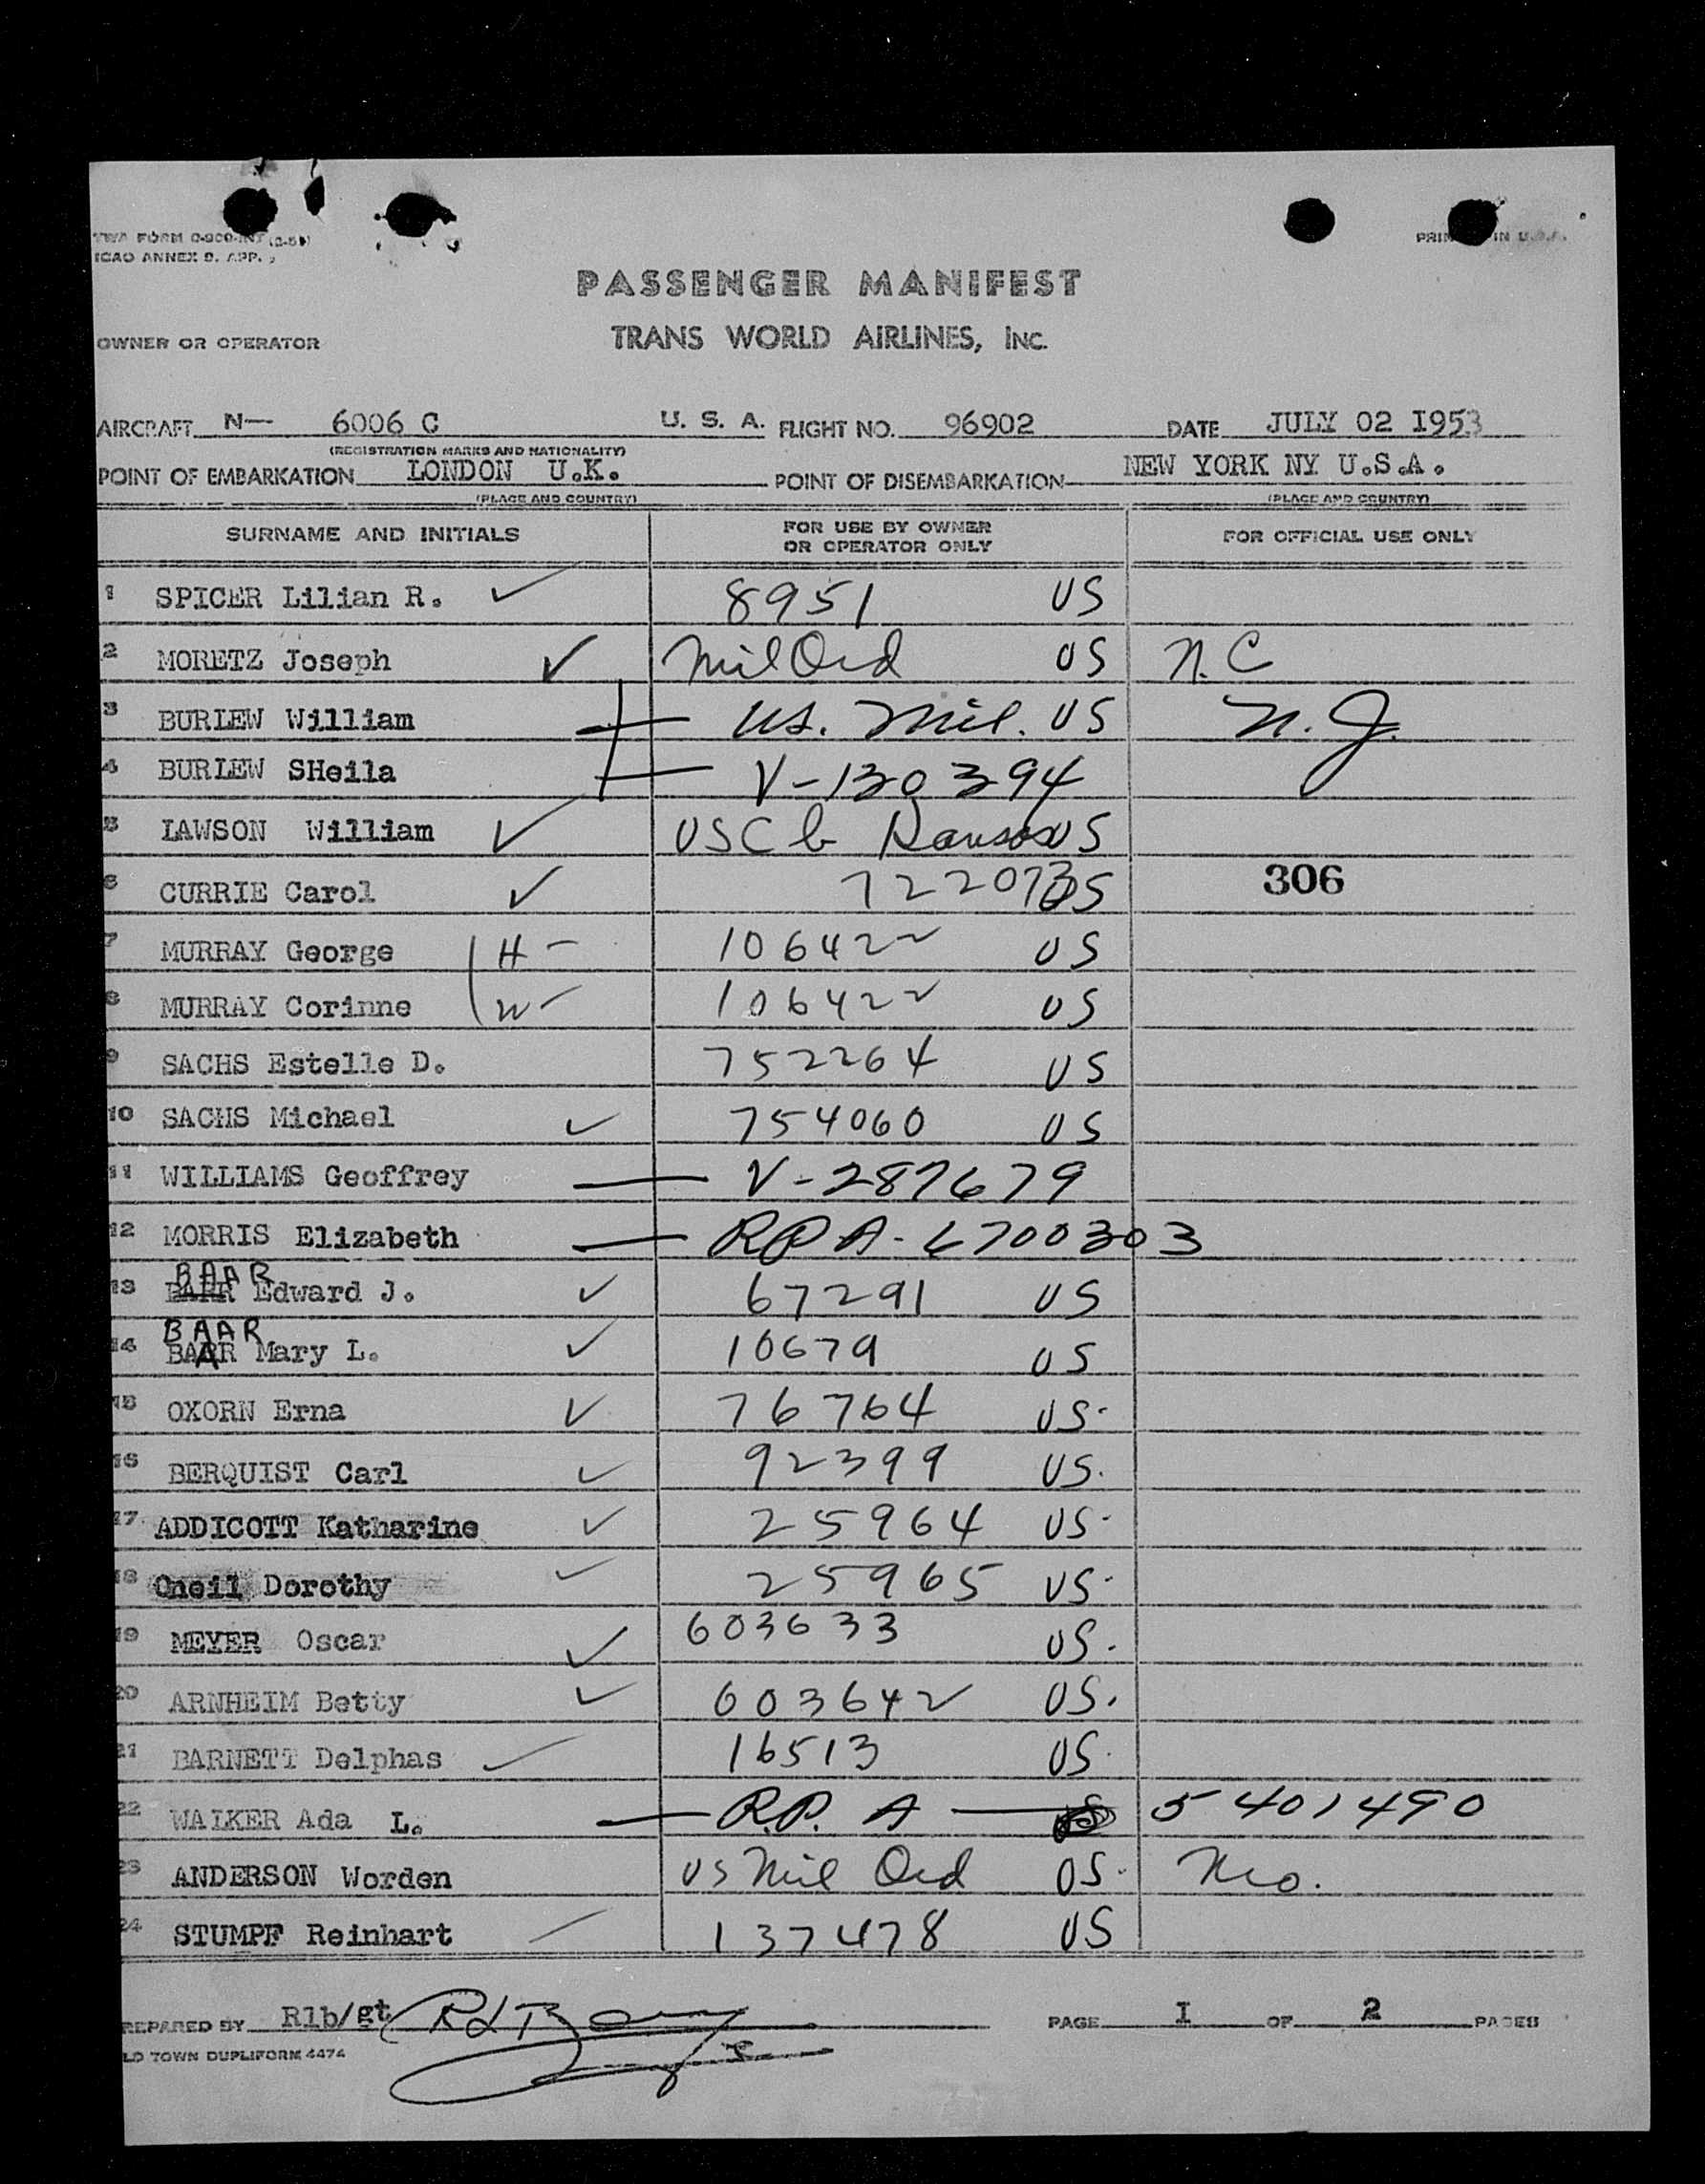 TWA FORM
PRIN IN U.S.A.
ICAO ANNEX 9. APP.
PASSENGER MANIFEST
OWNER OR OPERATOR TRANS WORLD AIRLINES, INC.
AIRCRAFT N— 6006 C U. S. A. FLIGHT NO. 96902 DATE JULY 02 I953
(REGISTRATION MARKS AND NATIONALITY)
POINT OF EMBARKATION LONDON U.K. POINT OF DISEMBARKATION NEW YORK NY U.S.A.
(PLACE AND COUNTRY) (PLACE AND COUNTRY)
SURNAME AND INITIALS FOR USE BY OWNER OR OPERATOR ONLY FOR OFFICIAL USE ONLY
1 SPICER Lilian R. ✓ 8951 US
2 MORETZ Joseph ✓ Mil Ord US N.C
3 BURLEW William US. Mil. US N.J.
4 BURLEW SHeila V-130394
5 LAWSON William ✓ USC US
6 CURRIE Carol ✓ 722073 US 306
7 MURRAY George H - 106422 US
8 MURRAY Corinne W - 106422 US
9 SACHS Estelle D. 752264 US
10 SACHS Michael ✓ 754060 US
11 WILLIAMS Geoffrey — V-287679
12 MORRIS Elizabeth — RPA-6700303
13 BAAR Edward J. ✓ 67291 US
14 BAAR Mary L. ✓ 10679 US
15 OXORN Erna ✓ 76764 US.
16 BERQUIST Carl ✓ 92399 US.
17 ADDICOTT Katharine ✓ 25964 US.
18 Oneil Dorothy ✓ 25965 US.
19 MEYER Oscar ✓ 603633 US.
20 ARNHEIM Betty ✓ 603642 US.
21 BARNETT Delphas ✓ 16513 US.
22 WALKER Ada L. — R.P. A — 5401490
23 ANDERSON Worden US Mil Ord US. Mo.
24 STUMPF Reinhart 137478 US
PREPARED BY Rlb/gt PAGE I OF 2 PAGES
LD TOWN DUPLIFORM 4474